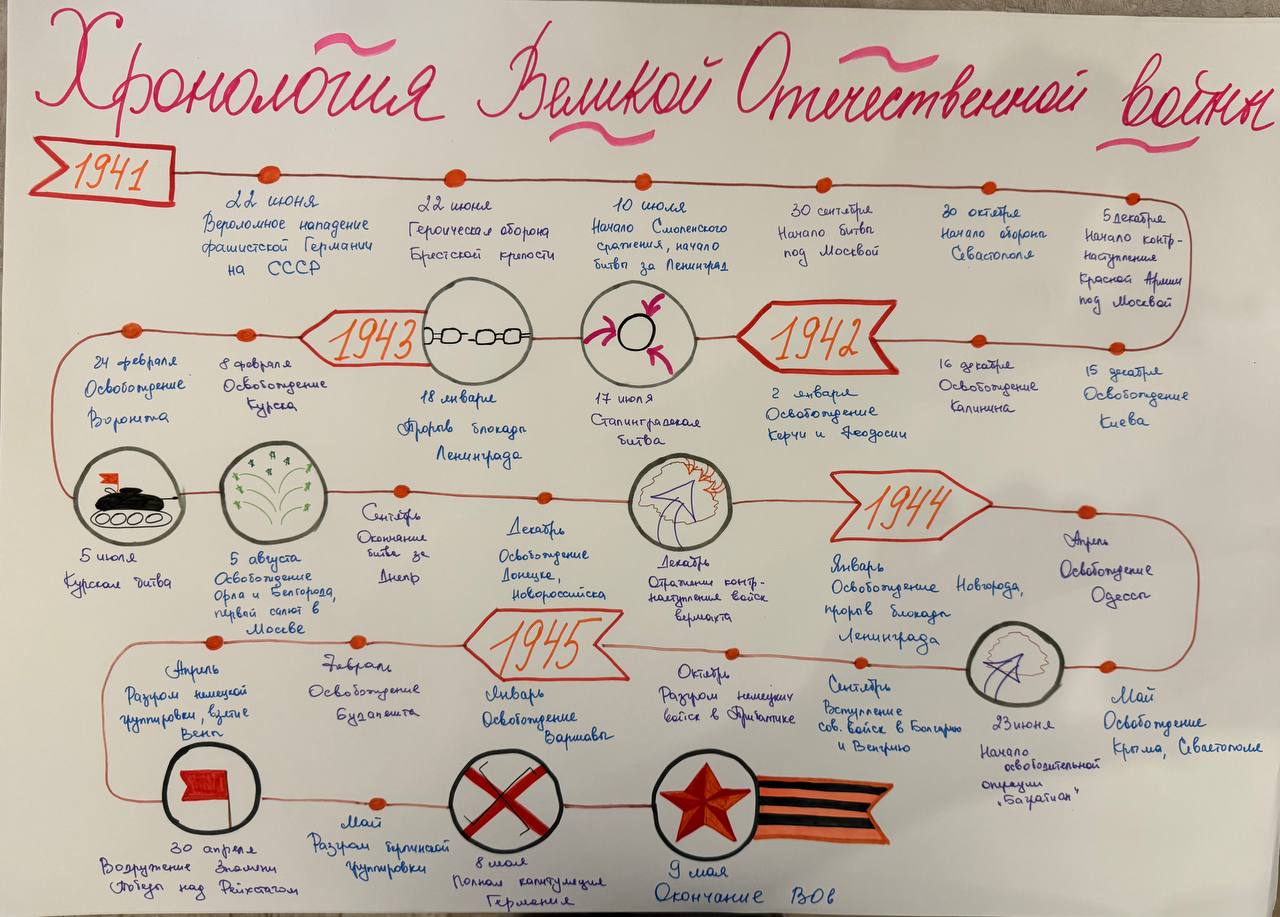 Хронология Великой Отечественной войны
1941
22 июня
Вероломное нападение
фашистской Германии
на СССР
22 июня
Героическая оборона
Брестской крепости
10 июля
Начало Смоленского
сражения, начало
битвы за Ленинград
30 сентября
Начало битвы
под Москвой
30 октября
Начало обороны
Севастополя
5 декабря
Начало контр-
наступления
Красной Армии
под Москвой
24 февраля
Освобождение
Воронежа
8 февраля
Освобождение
Курска
1943
18 января
Прорыв блокады
Ленинграда
17 июля
Сталинградская
битва
1942
2 января
Освобождение
Керчи и Феодосии
16 декабря
Освобождение
Калинина
15 декабря
Освобождение
Киева
5 июля
Курская битва
5 августа
Освобождение
Орла и Белгорода,
первый салют в
Москве
Сентябрь
Окончание
битвы за
Днепр
Декабрь
Освобождение
Донецка,
Новороссийска
Декабрь
контр-
наступления войск
вермахта
1944
Январь
Освобождение Новгорода,
прорыв блокады
Ленинграда
Апрель
Освобождение
Одессы
Апрель
Разгром немецкой
группировки, взятие
Вены
Февраль
Освобождение
Будапешта
1945
Январь
Освобождение
Варшавы
Октябрь
Разгром немецких
войск в Прибалтике
Сентябрь
Вступление
сов. войск в Болгарию
и Венгрию
23 июня
Начало
освободительной
операции
"Багратион"
Май
Освобождение
Крыма, Севастополя
30 апреля
Водружение Знамени
Победы над Рейхстагом
Май
Разгром берлинской
группировки
8 мая
Полная капитуляция
Германия
9 мая
Окончание ВОв